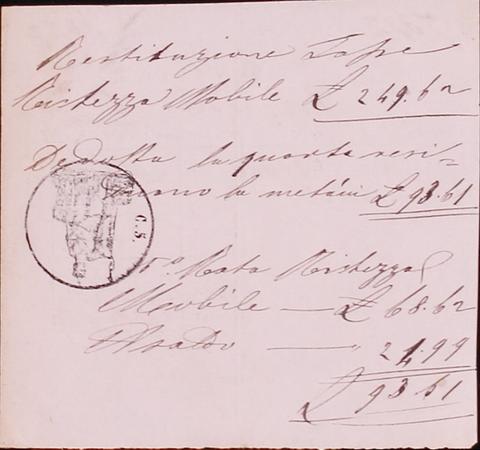 Restituzione Tasse
Ricchezza Mobile £ 249.62
Dedotta la quarta resi-
la metà in £ 93.61
C.S.
5ª Rata Ricchezza
Mobile — £ 68.62
— " 24.99
£ 93.61